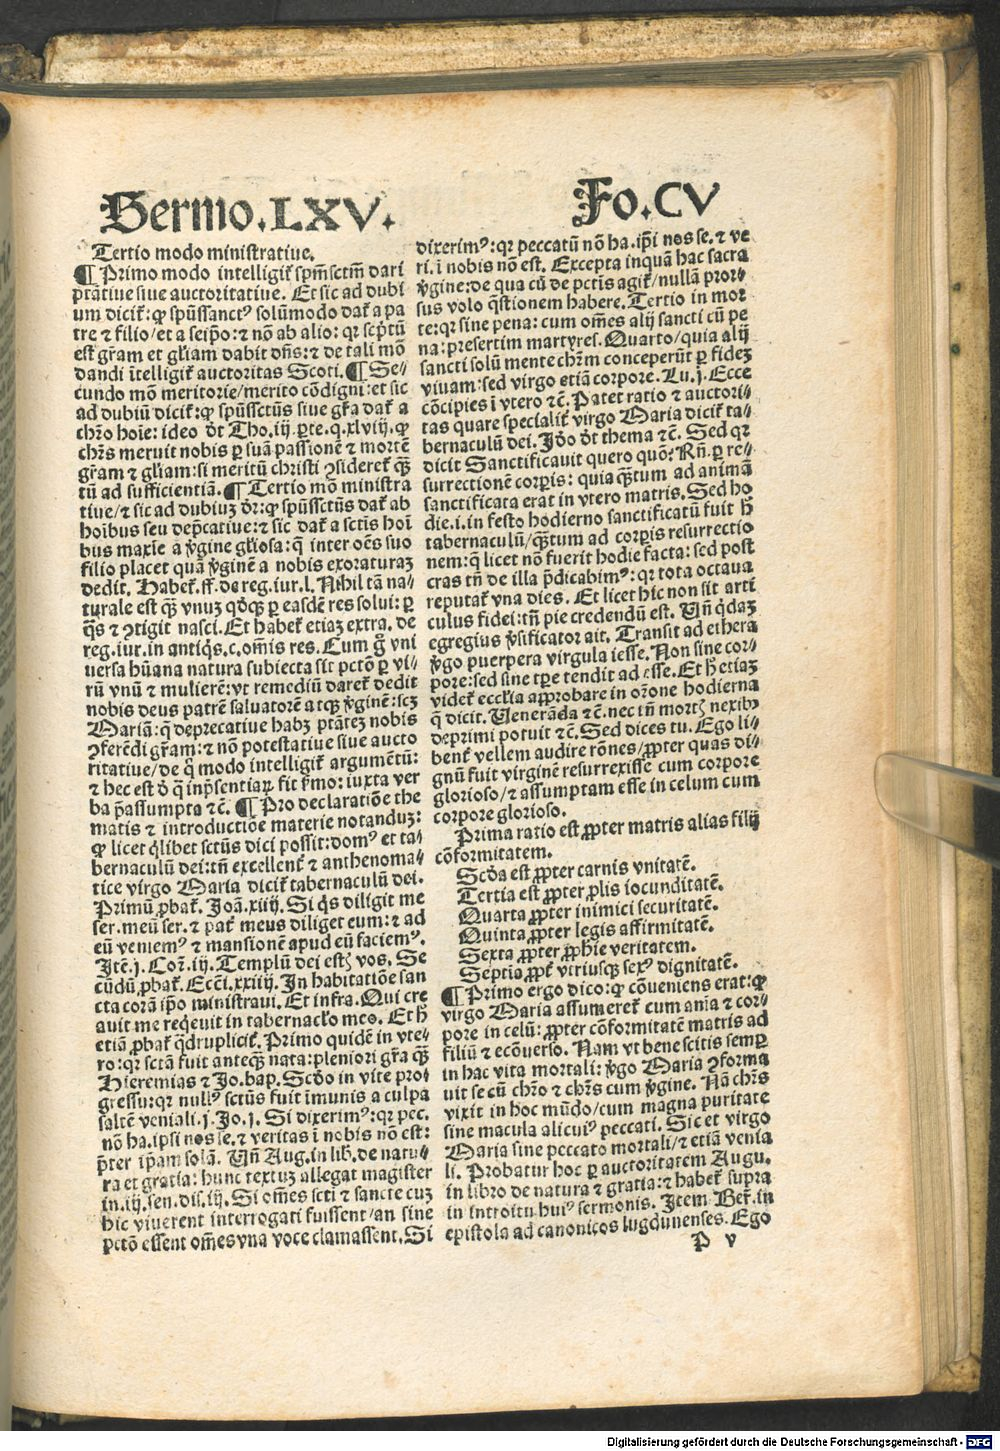 Sermo.LXV.
Fo.CV
Tertio modo ministratiue.
¶ Primo modo intelligit᷑ spm̄sctm̄ dari
ptātiue siue auctoritatiue. Et sic ad dubi
um dicit᷑: ꝙ spūssanctꝰ solūmodo dat᷑ a pa
tre ⁊ filio/et a seip̄o: ⁊ nō ab alio: qꝛ scp̄tū
est gr̄am et gl̄iam dabit dn̄s: ⁊ de tali mō
dandi ītelligit᷑ auctoritas Scoti. ¶ Se⸗
cundo mō meritorie/merito cōdigni: et sic
ad dubiū dicit᷑: ꝙ spūssctūs siue gr̄a dat᷑ a
chr̄o hoīe: ideo dt̄ Tho.iij.ꝑte.q.xlviij.ꝙ
chr̄s meruit nobis ꝑ suā passionē ⁊ mortē
gr̄am ⁊ gl̄iam: si meritū christi ꝯsideret᷑ qȝ
tū ad sufficientiā. ¶ Tertio mō ministra
tiue/⁊ sic ad dubiuꝫ dr̄: ꝙ spūssctūs dat᷑ ab
hoībus seu dep̄catiue: ⁊ sic dat᷑ a sctīs hoī
bus maxīe a v̄gine gl̄iosa: q̄ inter oēs suo
filio placet quā v̄ginē a nobis exoraturaꝫ
dedit. Habet᷑.ff.de reg.iur.l. Nihil tā na⸗
turale est qȝ vnuꝫ qd̄qȝ ꝑ easdē res solui: ꝑ
q̄s ⁊ ꝯtigit nasci. Et habet᷑ etiaꝫ extra. de
reg.iur.in antiq̄s.c.om̄is res. Cum g̊ vni
uersa hūana natura subiecta sit pctō ꝑ vi⸗
rū vnū ⁊ mulierē: vt remediū daret᷑ dedit
nobis deus patrē saluatorē atqȝ v̄ginē: scꝫ
Mariā: q̄ deprecatiue habꝫ ptātēꝫ nobis
ꝯferēdi gr̄am: ⁊ nō potestatiue siue aucto
ritatiue/de q̊ modo intelligit᷑ argumētū:
⁊ hec est d̄ q̄ inp̄sentiaꝝ fit s̄mo: iuxta ver
ba p̄assumpta ⁊c̄. ¶ Pro declaratiōe the
matis ⁊ introductiōe materie notanduꝫ:
ꝙ licet q̄libet sctūs dici possit: domꝰ et ta⸗
bernaculū dei: tn̄ excellent᷑ ⁊ anthenoma⸗
tice virgo Maria dicit᷑ tabernaculū dei.
Primū ꝓbat᷑. Joā.xiiij. Si q̄s diligit me
ser.meū ser.⁊ pat᷑ meus diliget eum: ⁊ ad
eū veniemꝰ ⁊ mansionē apud eū faciemꝰ.
Jtē.j.Cor̄.iij. Templū dei estꝫ vos. Se
cūdū ꝓbat᷑. Ecc̄i.xxiiij. Jn habitatiōe san
cta corā ip̄o ministraui. Et infra. Qui cre
auit me req̄euit in tabernacl̄o meo. Et h̄
etiā ꝓbat᷑ q̄druplicit᷑. Primo quidē in vte⸗
ro: qꝛ sctā fuit anteqȝ nata: pleniori gr̄a qȝ
Hieremias ⁊ Jo.bap. Scd̄o in vite pro⸗
gressu: qꝛ nullꝰ sctūs fuit īmunis a culpa
saltē veniali.j.Jo.j. Si dixerimꝰ: qꝛ pec.
nō ha.ipsi nos se.⁊ veritas ī nobis nō est:
p̄ter ip̄am solā. Vn̄ Aug.in lib.de natu⸗
ra et gratia: hunc textuꝫ allegat magister
in.iij.sen.dis.iij. Si om̄es scti ⁊ sancte cuꝫ
hic viuerent interrogati fuissent/an sine
pctō essent om̄es vna voce clamassent. Si
dixerimꝰ: qꝛ peccatū nō ha.ip̄i nos se.⁊ ve
ri.ī nobis nō est. Excepta inquā hac sacra
v̄gine: de qua cū de pctīs agit᷑/nullā pror⸗
sus volo q̄stionem habere. Tertio in mor
te: qꝛ sine pena: cum om̄es alij sancti cū pe
na: presertim martyres. Quarto/quia alij
sancti solū mente chr̄m conceperūt ꝑ fideꝫ
viuam: sed virgo etiā corpore. Lu.j. Ecce
cōcipies ī vtero ⁊c̄. Patet ratio ⁊ auctori⸗
tas quare specialit᷑ virgo Maria dicit᷑ ta⸗
bernaculū dei. Jd̄o dt̄ thema ⁊c̄. Sed qꝛ
dicit Sanctificauit quero quō? Rn̄. ꝑ re⸗
surrectionē corp̄is: quia qȝtum ad animā
sanctificata erat in vtero matris. Sed ho
die.i.in festo hodierno sanctificatū fuit h̄
tabernaculū/qȝtum ad corp̄is resurrectio
nem: q̄ licet nō fuerit hodie facta: sed post
cras tn̄ de illa p̄dicabimꝰ: qꝛ tota octaua
reputat᷑ vna dies. Et licet hic non sit arti
culus fidei: tn̄ pie credendū est. Vn̄ q̄daꝫ
egregius v̄sificator ait. Transit ad ethera
v̄go puerpera virgula iesse. Non sine cor⸗
pore: sed sine tꝑe tendit ad esse. Et h̄ etiaꝫ
videt᷑ eccl̄ia approbare in or̄one hodierna
q̄ dicit. Uenerāda ⁊c̄. nec tn̄ mortꝫ nexibꝰ
deprimi potuit ⁊c̄. Sed dices tu. Ego li⸗
bent᷑ vellem audire rōnes/ꝓpter quas di⸗
gnū fuit virginē resurrexisse cum corpore
glorioso/⁊ assumptam esse in celum cum
corpore glorioso.
Prima ratio est ꝓpter matris alias filij
cōformitatem.
Scd̄a est ꝓpter carnis vnitatē.
Tertia est ꝓpter ꝓlis iocunditatē.
Quarta ꝓpter inimici securitatē.
Quinta ꝓpter legis affirmitatē.
Sexta ꝓpter ꝓphie veritatem.
Septia ꝓpt᷑ vtriusqȝ sexꝰ dignitatē.
¶ Primo ergo dico: ꝙ cōueniens erat: ꝙ
virgo Maria assumeret᷑ cum anīa ⁊ cor⸗
pore in celū: ꝓpter cōformitatē matris ad
filiū ⁊ ecōuerso. Nam vt bene scitis semꝑ
in hac vita mortali: v̄go Maria ꝯforma
uit se cū chr̄o ⁊ chr̄s cum v̄gine. Nā chr̄s
vixit in hoc mūdo/cum magna puritate
sine macula alicuiꝰ peccati. Sic et virgo
Maria sine peccato mortali/⁊ etiā venia
li. Probatur hoc ꝑ auctoritatem Augu.
in libro de natura ⁊ gratia: ⁊ habet᷑ supra
in introitu huiꝰ sermonis. Jtem Ber̄.in
epistola ad canonicos lugdunenses. Ego
P v
Digitalisierung gefördert durch die Deutsche Forschungsgemeinschaft - DFG